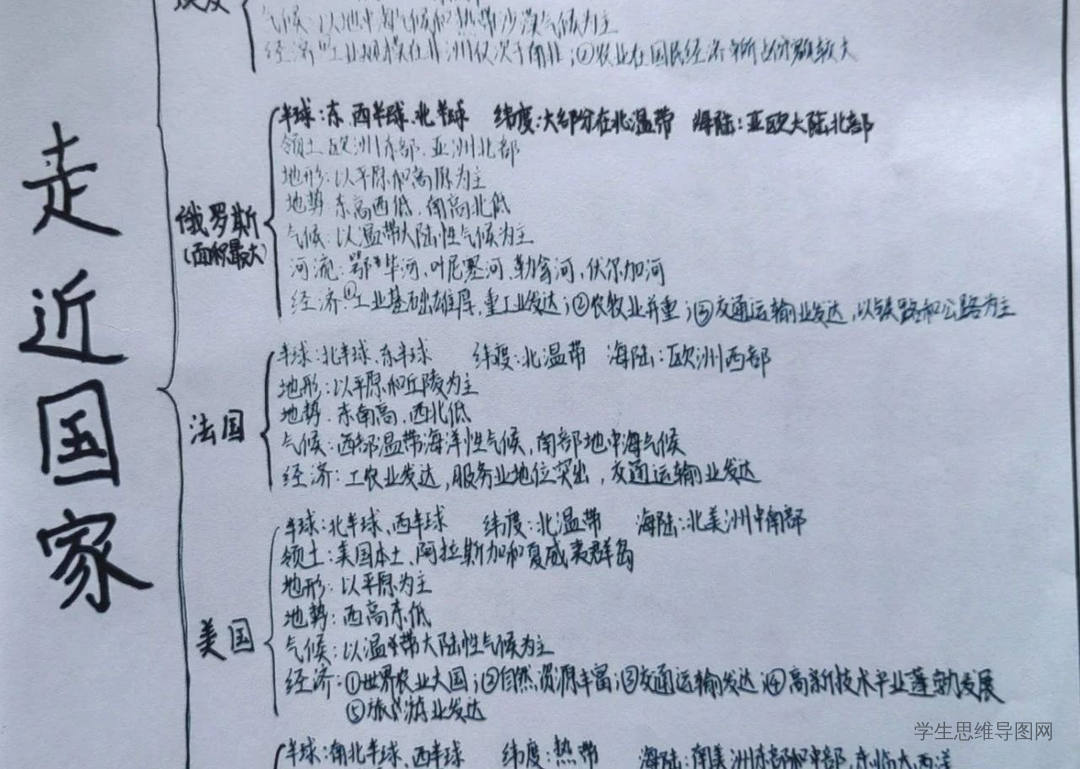 气候：以地中海气候和热带沙漠气候为主
经济 工业规模在非洲仅次于南非；②农业在国民经济中所占份额较大
走近国家
俄罗斯
（面积最大）
半球：东、西半球、北半球 纬度：大部分在北温带 海陆：亚欧大陆北部
领土 欧洲东部、亚洲北部
地形：以平原和高原为主
地势 东高西低、南高北低
气候：以温带大陆性气候为主
河流：鄂毕河、叶尼塞河、勒拿河、伏尔加河
经济：①工业基础雄厚，重工业发达；②农牧业并重；③交通运输业发达，以铁路和公路为主
法国
半球：北半球、东半球 纬度：北温带 海陆：欧洲西部
地形：以平原和丘陵为主
地势：东南高、西北低
气候：西部温带海洋性气候，南部地中海气候
经济：工农业发达，服务业地位突出，交通运输业发达
美国
半球：北半球、西半球 纬度：北温带 海陆：北美洲中南部
领土：美国本土、阿拉斯加和夏威夷群岛
地形：以平原为主
地势：西高东低
气候：以温带大陆性气候为主
经济：①世界农业大国；②自然资源丰富；③交通运输发达；④高新技术产业蓬勃发展
⑤旅游业发达
半球：南北半球、西半球 纬度：热带 海陆：南美洲东部和中部，东临大西洋
学生思维导图网